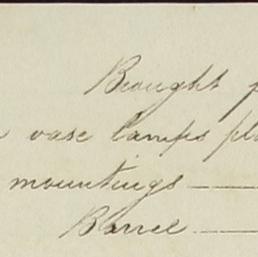 Brought
vase lamps
mountings
Barrel